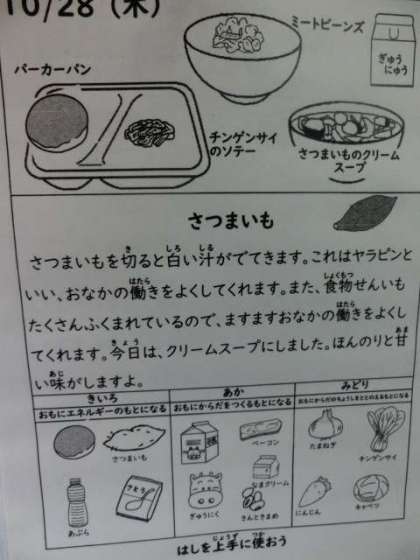 10/28（木）
ミートビーンズ
ぎゅうにゅう
バーカーパン
チンゲンサイのソテー
さつまいものクリームスープ
さつまいも
さつまいもを切ると白い汁がでてきます。これはヤラピンと
いい、おなかの働きをよくしてくれます。また、食物せんいも
たくさんふくまれているので、ますますおなかの働きをよくし
てくれます。今日は、クリームスープにしました。ほんのりと甘
い味がしますよ。
きいろ
おもにエネルギーのもとになる
さつまいも
あぶら
さとう
あか
おもにからだをつくるもとになる
ベーコン
なまクリーム
ぎゅうにく
きんときまめ
みどり
おもにからだのちょうしをととのえるもとになる
たまねぎ
チンゲンサイ
にんじん
キャベツ
はしを上手に使おう